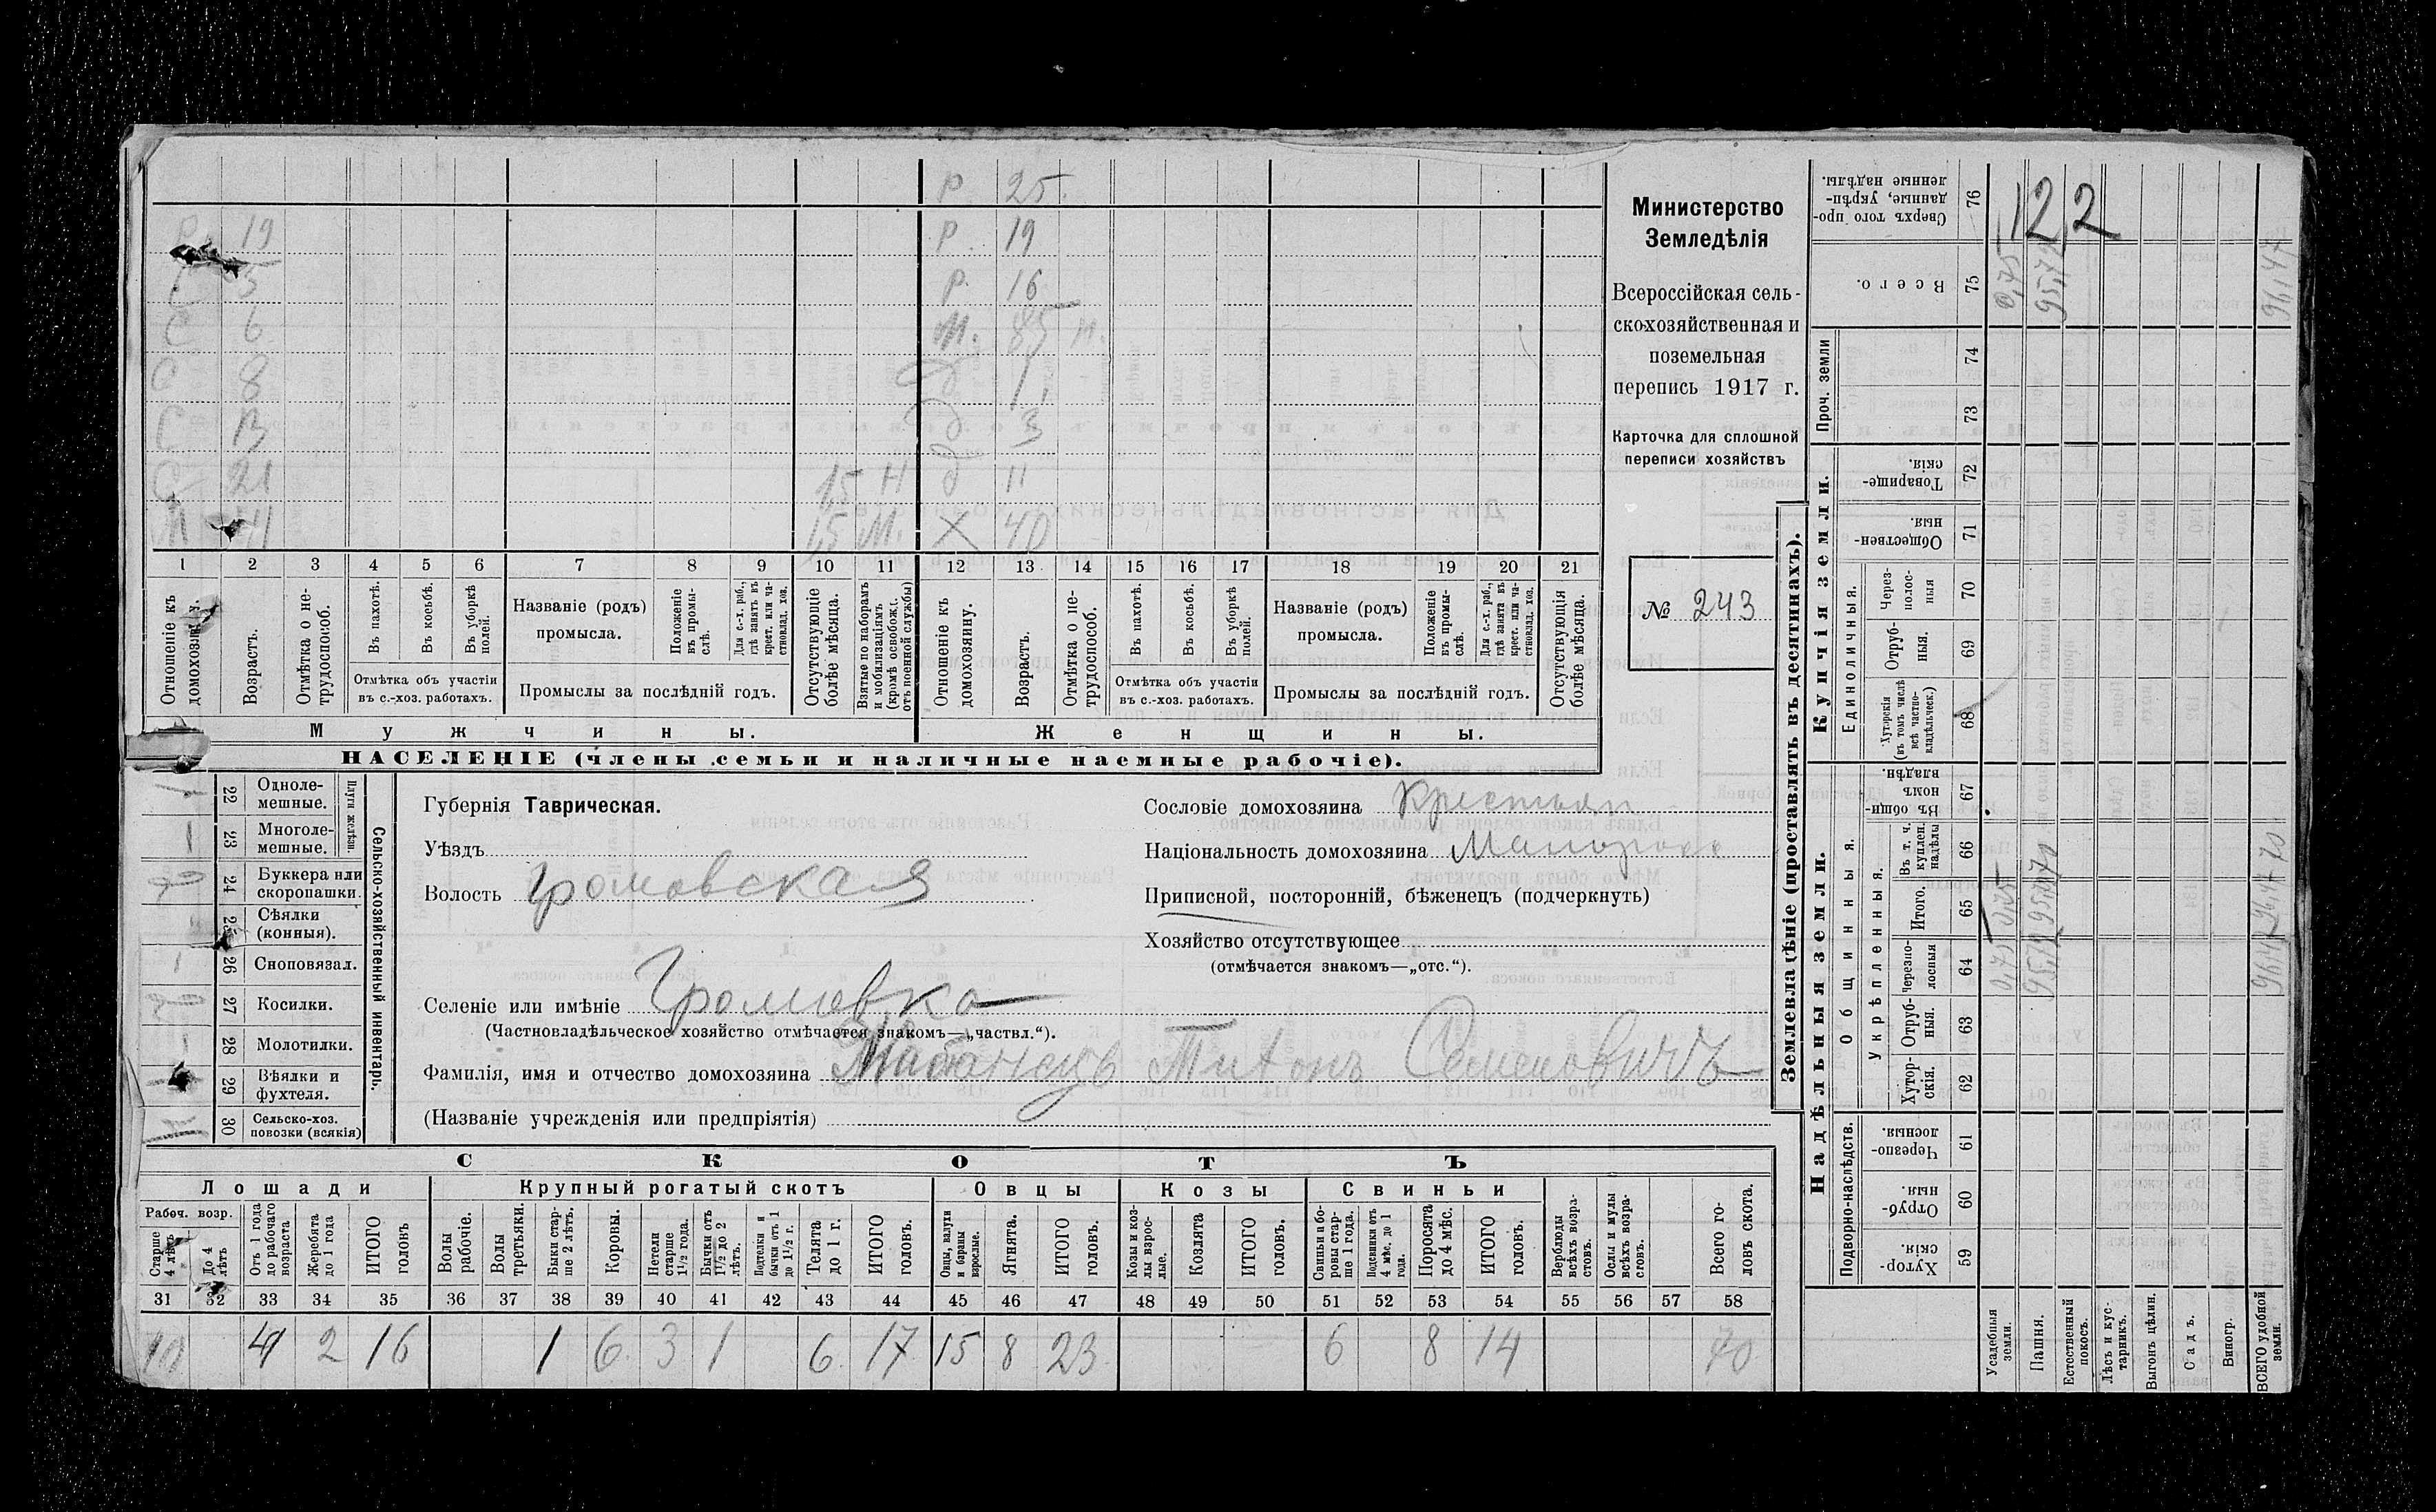 Р 25.
Р. 19 Р 19
С 5 Р. 16
С 6 М. 85 н.
С 8 д 1.
С 13 д 3
С 21 15 Н д 11
41 15 М. Х 40
1 2 3 4 5 6 7 8 9 10 11 12 13 14 15 16 17 18 19 20 21
Отношеніе къ домохозяину.
Возрастъ.
Отмѣтка о не-
трудоспособ.
Въ пахотѣ.
Въ косьбѣ.
Въ уборкѣ полей.
Отмѣтка объ участіи
въ с.-хоз. работахъ.
Названіе (родъ)
промысла.
Положеніе въ промы-
слѣ.
Для с.-х. раб.,
гдѣ занятъ въ
крест. или ча-
стновлад. хоз.
Промыслы за послѣдній годъ.
Отсутствующіе
болѣе мѣсяца.
Взятые по наборамъ
и мобилизаціямъ
(кромѣ освобожд.
отъ военной службы)
Отношеніе къ
домохозяину.
Возрастъ.
Отмѣтка о не-
трудоспособ.
Въ пахотѣ.
Въ косьбѣ.
Въ уборкѣ
полей.
Отмѣтка объ участіи
въ с.-хоз. работахъ.
Названіе (родъ)
промысла.
Положеніе
въ промы-
слѣ.
Для с.-х. раб.,
гдѣ занята въ
крест. или ча-
стновлад. хоз.
Промыслы за послѣдній годъ.
Отсутствующія
болѣе мѣсяца.
Мужчины. Женщины.
НАСЕЛЕНІЕ (члены семьи и наличные наемные рабочіе).
Министерство
Земледѣлія
Всероссійская сель-
скохозяйственная и
поземельная
перепись 1917 г.
Карточка для сплошной
переписи хозяйствъ
№ 243
22 Одноле-
мешные.
23 Многоле-
мешные.
Плуги желѣзн.
24 Буккера или
скоропашки.
25 Сѣялки
(конныя).
26 Сноповязал.
27 Косилки.
28 Молотилки.
29 Вѣялки и
фухтеля.
30 Сельско-хоз.
повозки (всякія)
Сельско-хозяйственный инвентарь.
Губернія Таврическая.
Уѣздъ
Волость Громовская
Селеніе или имѣніе Громовка
(Частновладѣльческое хозяйство отмѣчается знакомъ—„частвл.“).
Фамилія, имя и отчество домохозяина Тихонъ Семеновичъ
(Названіе учрежденія или предпріятія)
Сословіе домохозяина Крестьян
Національность домохозяина Малоросс
Приписной, посторонній, бѣженецъ (подчеркнуть)
Хозяйство отсутствующее
(отмѣчается знакомъ—„отс.“).
СКОТЪ
Лошади Крупный рогатый скотъ Овцы Козы Свиньи
Рабоч. возр.
Старше
4 лѣтъ
До 4
лѣтъ
Отъ 1 года
до рабочаго
возраста
Жеребята
до 1 года
ИТОГО
головъ
Волы
рабочіе.
Волы
третьяки.
Быки стар-
ше 2 лѣтъ.
Коровы.
Нетели
старше
1½ года.
Бычки отъ
1½ до 2
лѣтъ.
Подтелки и
бычки отъ 1
до 1½ г.
Телята
до 1 г.
ИТОГО
головъ.
Овцы, валухи
и бараны
взрослые.
Ягнята.
ИТОГО
головъ.
Козы и коз-
лы взрос-
лые.
Козлята
ИТОГО
головъ.
Свиньи и бо-
ровы стар-
ше 1 года.
Подсвинки отъ
4 мѣс. до 1
года.
Поросята
до 4 мѣс.
ИТОГО
головъ.
Верблюды
всѣхъ возра-
стовъ.
Ослы и мулы
всѣхъ возра-
стовъ.
Всего го-
ловъ скота.
31 32 33 34 35 36 37 38 39 40 41 42 43 44 45 46 47 48 49 50 51 52 53 54 55 56 57 58
10 4 2 16 1 6 3 1 6 17 15 8 23 6 8 14 70
Землевладѣніе (проставлять въ десятинахъ).
Надѣльныя земли. Купчія земли. Проч. земли
Подворно-наслѣдств.
Общинныя.
Укрѣпленныя.
Единоличныя.
Сверхъ того про-
данные, укрѣп-
ленные надѣлы. 76
122
Всего. 75 0,75 95,72 96,47
74
73
Товарище-
скія. 72
Обществен-
ныя. 71
Через-
полос-
ныя 70
Отруб-
ныя. 69
Хуторскія
(въ томъ числѣ
всѣ частно-
владѣльческ.) 68
Въ общин-
номъ
владѣн. 67
Въ т. ч.
куплен.
надѣлы 66
Итого. 65
Черезпо-
лосныя 64
Отруб-
ныя. 63
Хутор-
скія. 62
Черезпо-
лосныя. 61
Отруб-
ныя. 60
Хутор-
скія. 59
Усадебныя
земли.
Пашня.
Естественный
покосъ.
Лѣсъ и кус-
тарникъ.
Выгонъ цѣлин.
Садъ.
Виногр.
ВСЕГО удобной
земли.